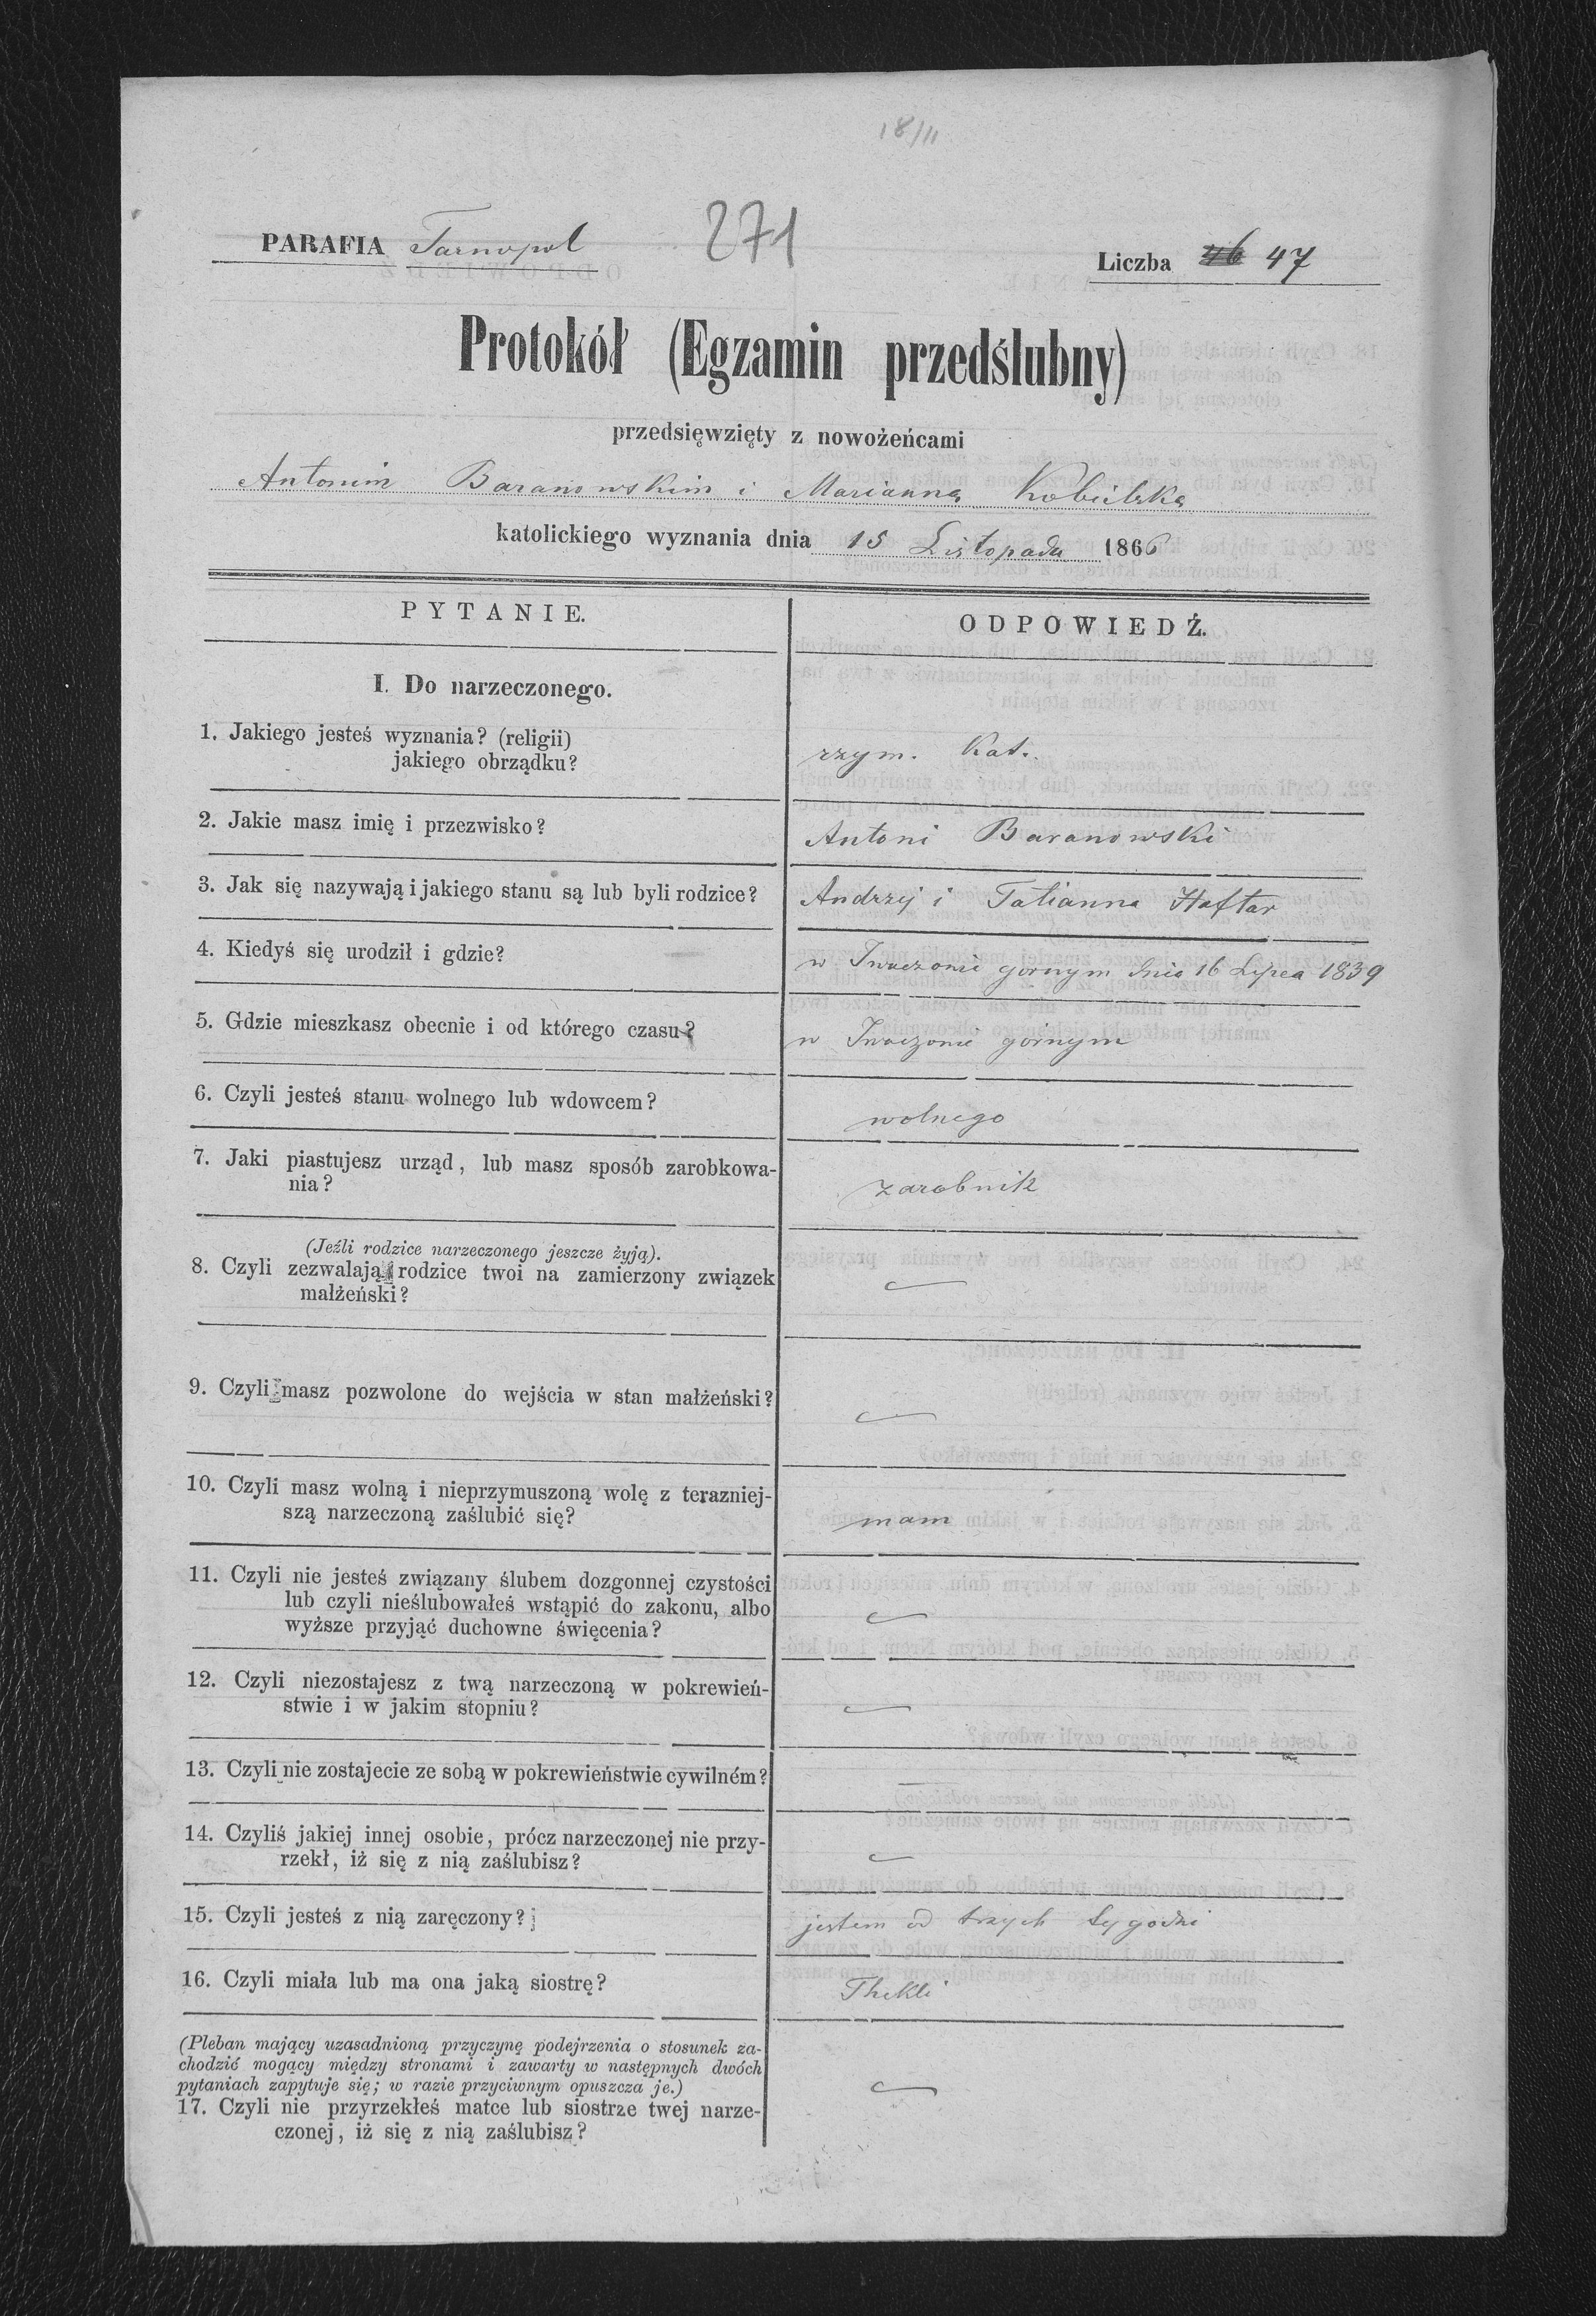 18/11
PARAFIA Tarnopol 271 Liczba 46 47
Protokół (Egzamin przedślubny)
przedsięwzięty z nowożeńcami
Antonim Baranowskim i Marianną Kobielską
katolickiego wyznania dnia 15 Listopada 1866
PYTANIE. ODPOWIEDŹ.
I. Do narzeczonego.
1. Jakiego jesteś wyznania? (religii)
jakiego obrządku? rzym. Kat.
2. Jakie masz imię i przezwisko? Antoni Baranowski
3. Jak się nazywają i jakiego stanu są lub byli rodzice? Andrzej i Tatianna Haftar
4. Kiedyś się urodził i gdzie? w Iwaczowie gornym dnia 16 Lipca 1839
5. Gdzie mieszkasz obecnie i od którego czasu? w Iwaczowie górnym
6. Czyli jesteś stanu wolnego lub wdowcem? wolnego
7. Jaki piastujesz urząd, lub masz sposób zarobkowa-
nia? zarobnik
(Jeźli rodzice narzeczonego jeszcze żyją).
8. Czyli zezwalają rodzice twoi na zamierzony związek
małżeński?
9. Czyli masz pozwolone do wejścia w stan małżeński?
10. Czyli masz wolną i nieprzymuszoną wolę z terazniej-
szą narzeczoną zaślubić się? mam
11. Czyli nie jesteś związany ślubem dozgonnej czystości
lub czyli nieślubowałeś wstąpić do zakonu, albo
wyższe przyjąć duchowne święcenia?
12. Czyli niezostajesz z twą narzeczoną w pokrewień-
stwie i w jakim stopniu?
13. Czyli nie zostajecie ze sobą w pokrewieństwie cywilném?
14. Czyliś jakiej innej osobie, prócz narzeczonej nie przy-
rzekł, iż się z nią zaślubisz?
15. Czyli jesteś z nią zaręczony? jestem od trzech tygodni
16. Czyli miała lub ma ona jaką siostrę? Thekli
(Pleban mający uzasadnioną przyczynę podejrzenia o stosunek za-
chodzić mogący między stronami i zawarty w następnych dwóch
pytaniach zapytuje się; w razie przyciwnym opuszcza je.)
17. Czyli nie przyrzekłeś matce lub siostrze twej narze-
czonej, iż się z nią zaślubisz?